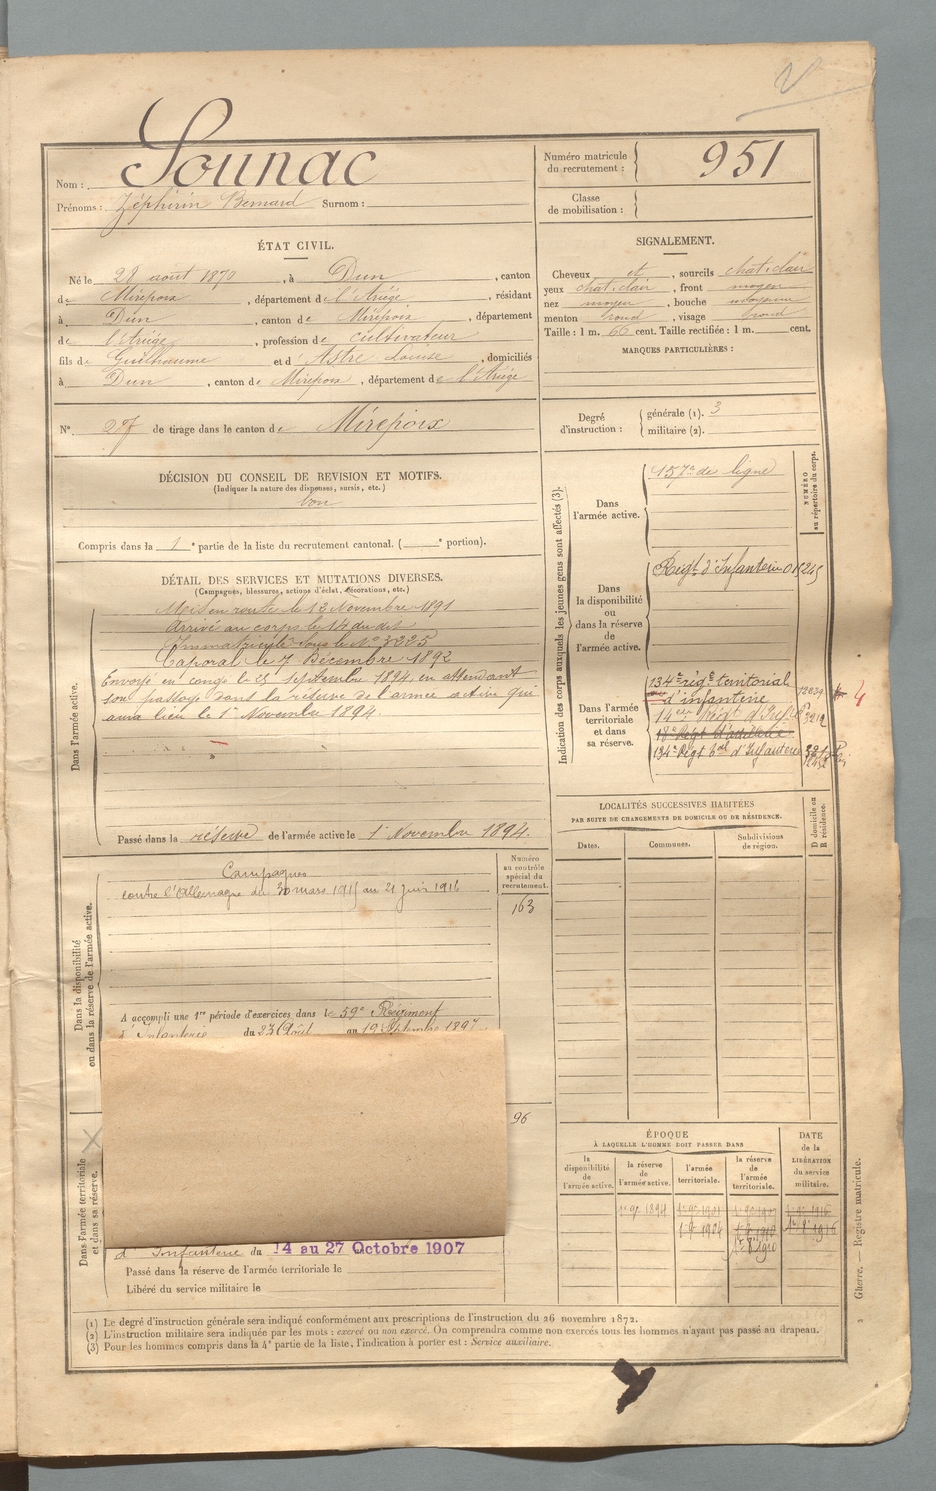 Nom : Sounac
Prénoms : Zéphirin Bernard Surnom :
Numéro matricule du recrutement : 951
Classe de mobilisation :
ÉTAT CIVIL.
Né le 28 août 1870, à Dun, canton
de Mirepoix, département de l'Ariège, résidant
à Dun, canton de Mirepoix, département
de l'Ariège, profession de cultivateur
fils de Guilhaume et d'Astre Louise, domiciliés
à Dun, canton de Mirepoix, département de l'Ariège
SIGNALEMENT.
Cheveux et, sourcils chat. clair
yeux chat. clair, front moyen
nez moyen, bouche moyenne
menton rond, visage rond
Taille : 1 m. 66 cent. Taille rectifiée : 1 m. cent.
MARQUES PARTICULIÈRES :
N° de tirage dans le canton de Mirepoix
Degré d'instruction : générale (1). 3
militaire (2).
DÉCISION DU CONSEIL DE REVISION ET MOTIFS.
(Indiquer la nature des dispenses, sursis, etc.)
bon
Compris dans la 1e partie de la liste du recrutement cantonal. ( e portion).
DÉTAIL DES SERVICES ET MUTATIONS DIVERSES.
(Campagnes, blessures, actions d'éclat, décorations, etc.)
Dans l'armée active.
Mis en route le 13 Novembre 1891
Arrivé au corps le 14 du dit
Immatriculé sous le N° 3225
Caporal le 7 Décembre 1892
Envoyé en congé le 25 septembre 1894, en attendant
son passage dans la réserve de l'armée active qui
aura lieu le 1er Novembre 1894
Passé dans la réserve de l'armée active le 1 Novembre 1894.
Indication des corps auxquels les jeunes gens sont affectés (3).
NUMÉRO au répertoire du corps.
Dans l'armée active.
157e de ligne
Dans la disponibilité ou dans la réserve de l'armée active.
Régt d'Infanterie
Dans l'armée territoriale et dans sa réserve.
134e régt territorial
d'infanterie
14 Régt d'Inf. 3212
18e Régt d'artillerie
134e Régt d'Infanterie
4
LOCALITÉS SUCCESSIVES HABITÉES
PAR SUITE DE CHANGEMENTS DE DOMICILE OU DE RÉSIDENCE.
Dates. Communes. Subdivisions de région.
D domicile ou R résidence.
Dans la disponibilité ou dans la réserve de l'armée active.
Numéro au contrôle spécial du recrutement.
163
Campagnes
contre l'Allemagne du 30 mars 1915 au 21 juin 1916
A accompli une 1re période d'exercices dans le 59e Régiment
d'Infanterie du 23 Août au 19 Septembre 1897
96
Dans l'armée territoriale et dans sa réserve.
d'Infanterie du 14 au 27 Octobre 1907
Passé dans la réserve de l'armée territoriale le
Libéré du service militaire le
ÉPOQUE
À LAQUELLE L'HOMME DOIT PASSER DANS
la disponibilité de l'armée active. la réserve de l'armée active. l'armée territoriale. la réserve de l'armée territoriale.
DATE de la LIBÉRATION du service militaire.
1 9bre 1894
1 8bre 1904
1er 8 1910
1er 8 1916
Guerre. — Registre matricule.
(1) Le degré d'instruction générale sera indiqué conformément aux prescriptions de l'instruction du 26 novembre 1872.
(2) L'instruction militaire sera indiquée par les mots : exercé ou non exercé. On comprendra comme non exercés tous les hommes n'ayant pas passé au drapeau.
(3) Pour les hommes compris dans la 4e partie de la liste, l'indication à porter est : Service auxiliaire.